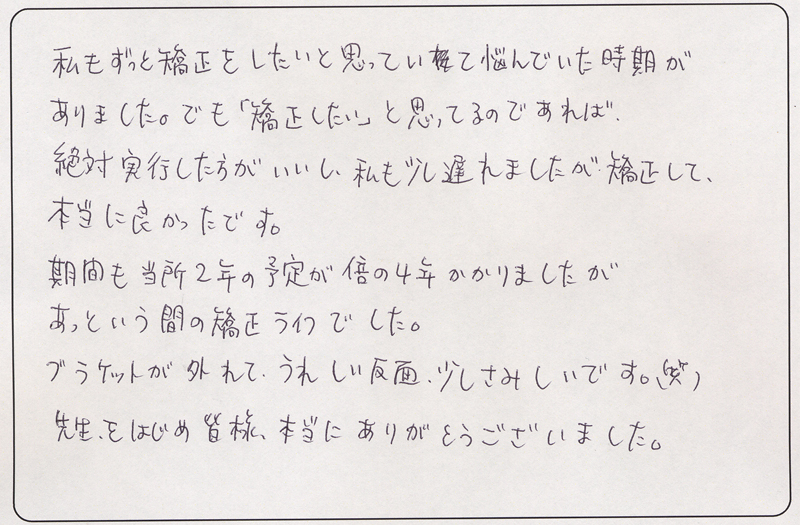 私もずっと矯正をしたいと思ってい て悩んでいた時期が
ありました。でも「矯正したい」と思ってるのであれば、
絶対実行した方がいいし、私も少し遅れましたが矯正して、
本当に良かったです。
期間も当所2年の予定が倍の4年かかりましたが
あっという間の矯正ライフでした。
ブラケットが外れて、うれしい反面、少しさみしいです。(笑)
先生、をはじめ皆様、本当にありがとうございました。